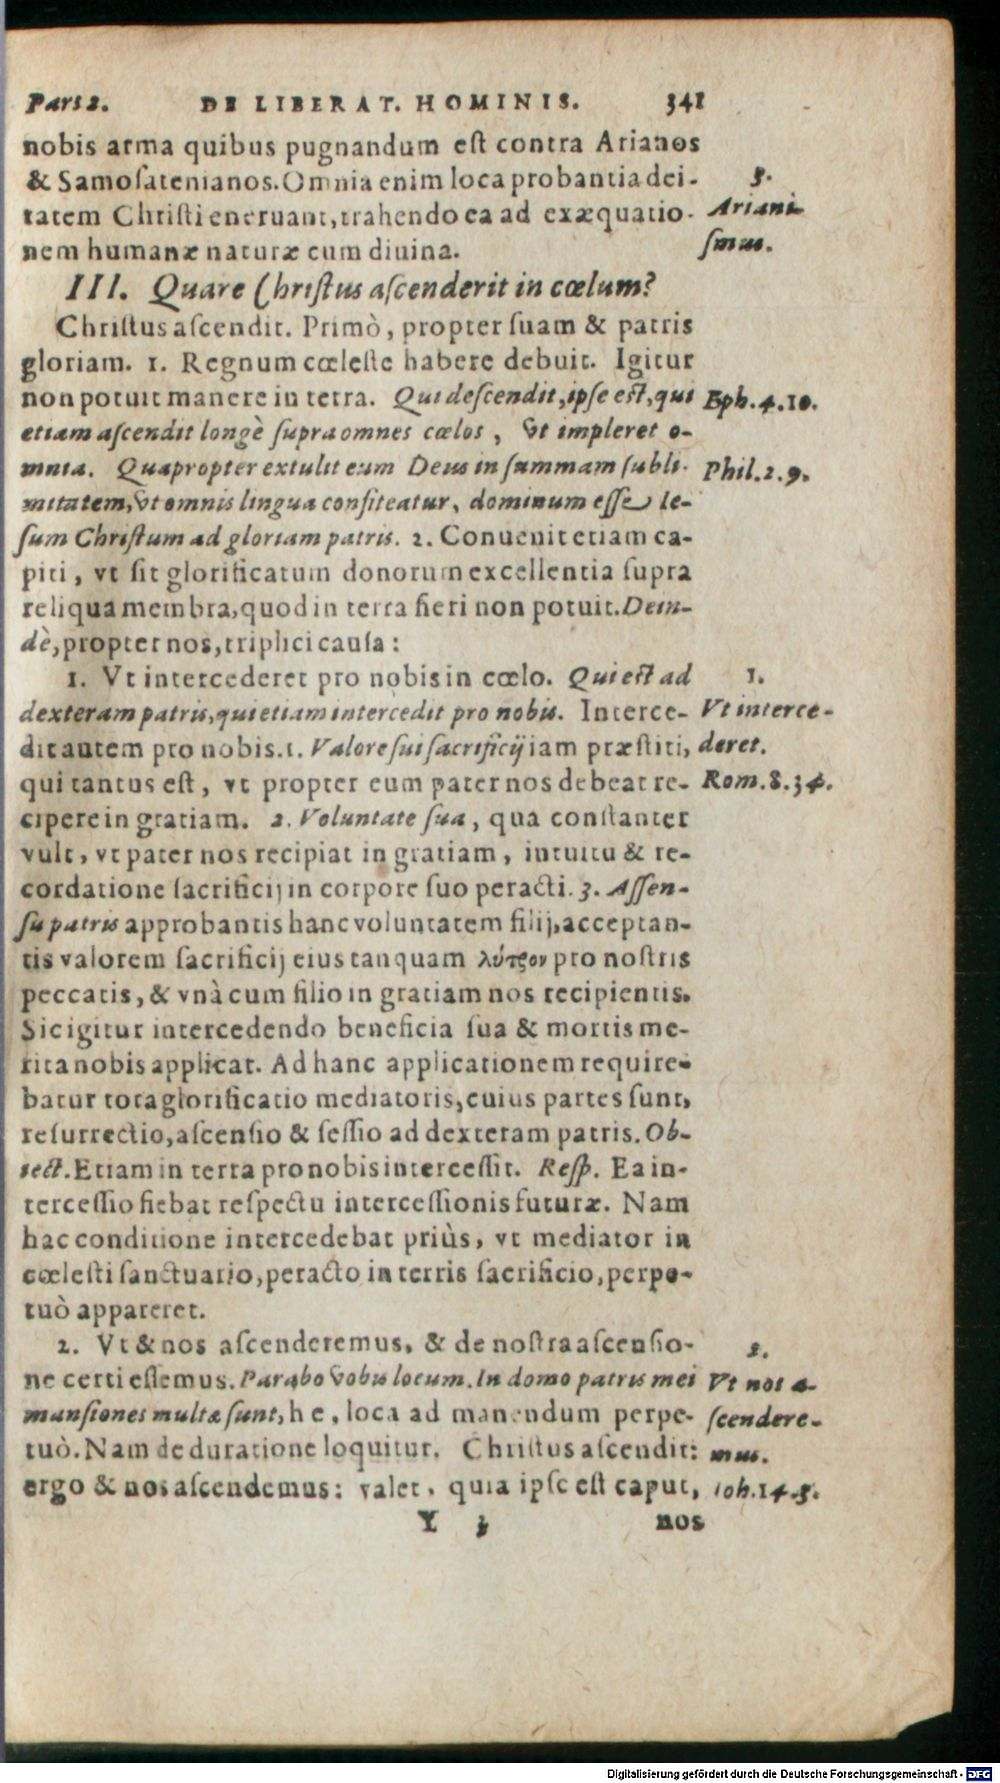 Pars 2. DE LIBERAT. HOMINIS. 341
nobis arma quibus pugnandum est contra Arianos
& Samosatenianos. Omnia enim loca probantia dei-
tatem Christi eneruant, trahendo ea ad exæquatio-
nem humanæ naturæ cum diuina.
3.
Ariani-
smus.
III. Quare Christus ascenderit in cœlum?
Christus ascendit. Primò, propter suam & patris
gloriam. 1. Regnum cœleste habere debuit. Igitur
non potuit manere in terra. Qui descendit, ipse est, qui
etiam ascendit longè supra omnes cœlos, vt impleret o-
mnia. Quapropter extulit eum Deus in summam subli-
mitatem, vt omnis lingua confiteatur, dominum esse Ie-
sum Christum ad gloriam patris. 2. Conuenit etiam ca-
piti, vt sit glorificatum donorum excellentia supra
reliqua membra, quod in terra fieri non potuit. Dein-
dè, propter nos, triplici causa:
Eph. 4. 10.
Phil. 2. 9.
1. Vt intercederet pro nobis in cœlo. Qui est ad
dexteram patris, qui etiam intercedit pro nobis. Interce-
dit autem pro nobis. 1. Valore sui sacrificij iam præstiti,
qui tantus est, vt propter eum pater nos debeat re-
cipere in gratiam. 2. Voluntate sua, qua constanter
vult, vt pater nos recipiat in gratiam, intuitu & re-
cordatione sacrificij in corpore suo peracti. 3. Assen-
su patris approbantis hanc voluntatem filij, acceptan-
tis valorem sacrificij eius tanquam λύτρον pro nostris
peccatis, & vnà cum filio in gratiam nos recipientis.
Sic igitur intercedendo beneficia sua & mortis me-
rita nobis applicat. Ad hanc applicationem require-
batur tota glorificatio mediatoris, cuius partes sunt,
resurrectio, ascensio & sessio ad dexteram patris. Ob-
iect. Etiam in terra pro nobis intercessit. Resp. Ea in-
tercessio fiebat respectu intercessionis futuræ. Nam
hac conditione intercedebat priùs, vt mediator in
cœlesti sanctuario, peracto in terris sacrificio, perpe-
tuò appareret.
1.
Vt interce-
deret.
Rom. 8. 34.
2. Vt & nos ascenderemus, & de nostra ascensio-
ne certi essemus. Parabo vobis locum. In domo patris mei
mansiones multæ sunt, h e, loca ad manendum perpe-
tuò. Nam de duratione loquitur. Christus ascendit:
ergo & nos ascendemus: valet, quia ipse est caput,
2.
Vt nos a-
scendere-
mus.
Ioh. 14. 3.
Y 3 nos
Digitalisierung gefördert durch die Deutsche Forschungsgemeinschaft - DFG